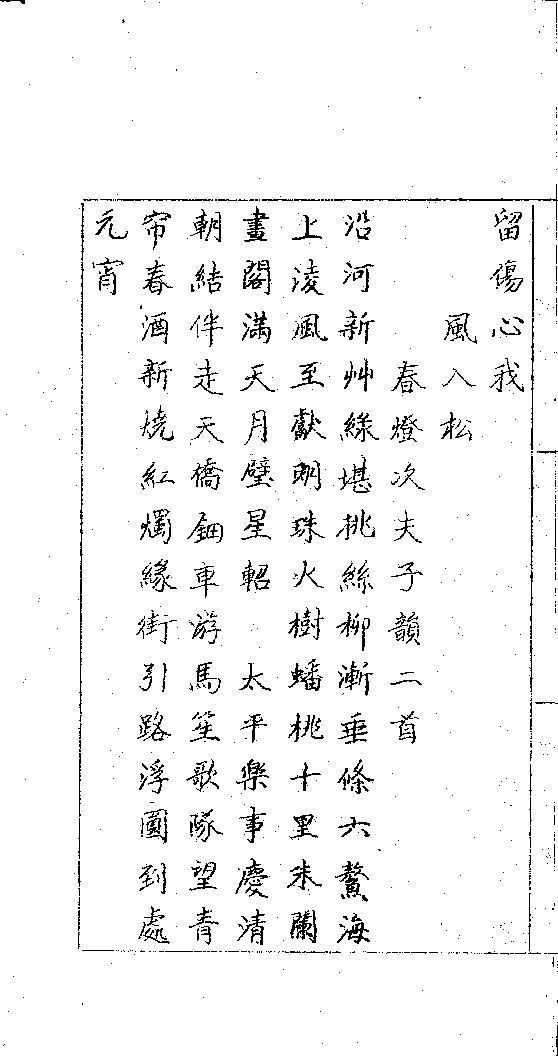 留傷心我
風入松
春燈次夫子韻二首
沿河新艸綠堪挑絲柳漸垂條六鰲海
上淩風至獻明珠火樹蟠桃十里朱闌
畫閣滿天月璧星軺　太平樂事慶清
朝結伴走天橋鈿車游馬笙歌隊望青
帘春酒新燒紅燭緣街引路浮圓到處
元宵